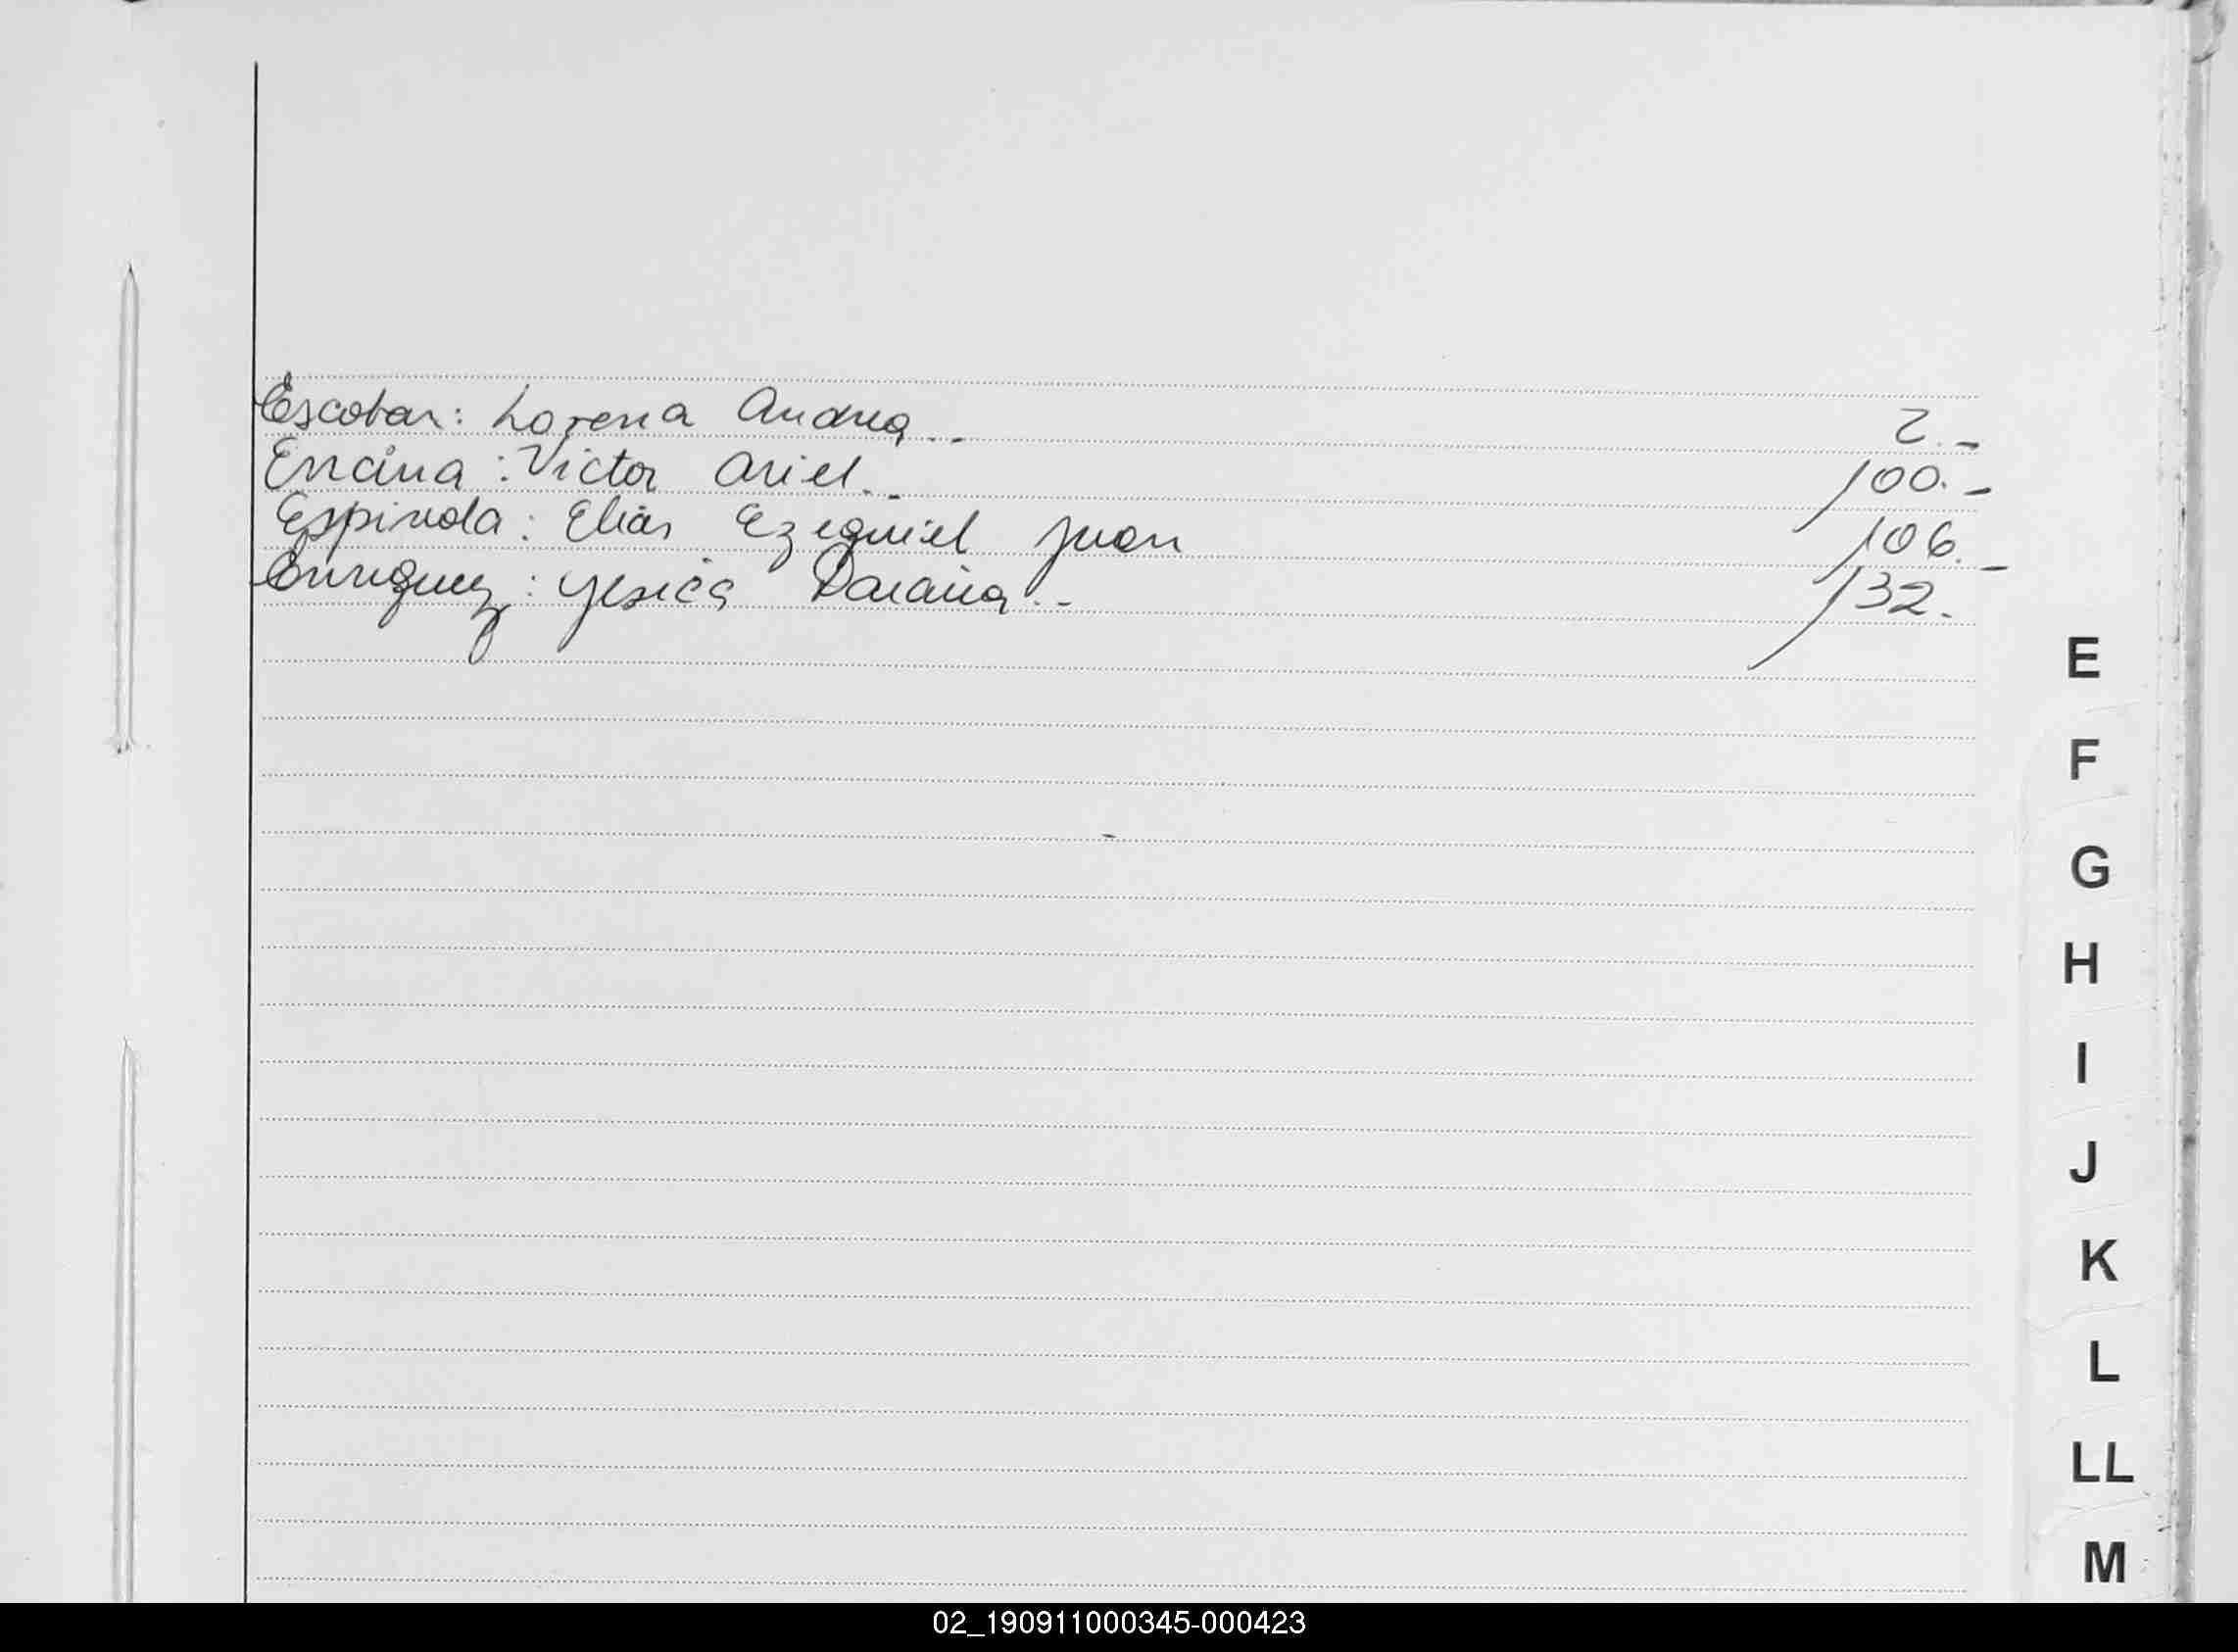 Escobar: Lorena Andrea.- 2.-
Encina: Victor Ariel.- 100.-
Espindola: Elias Ezequiel Juan 106.-
Enriquez: Yesica Daiana.- 132.-
E
F
G
H
I
J
K
L
LL
M
02_190911000345-000423